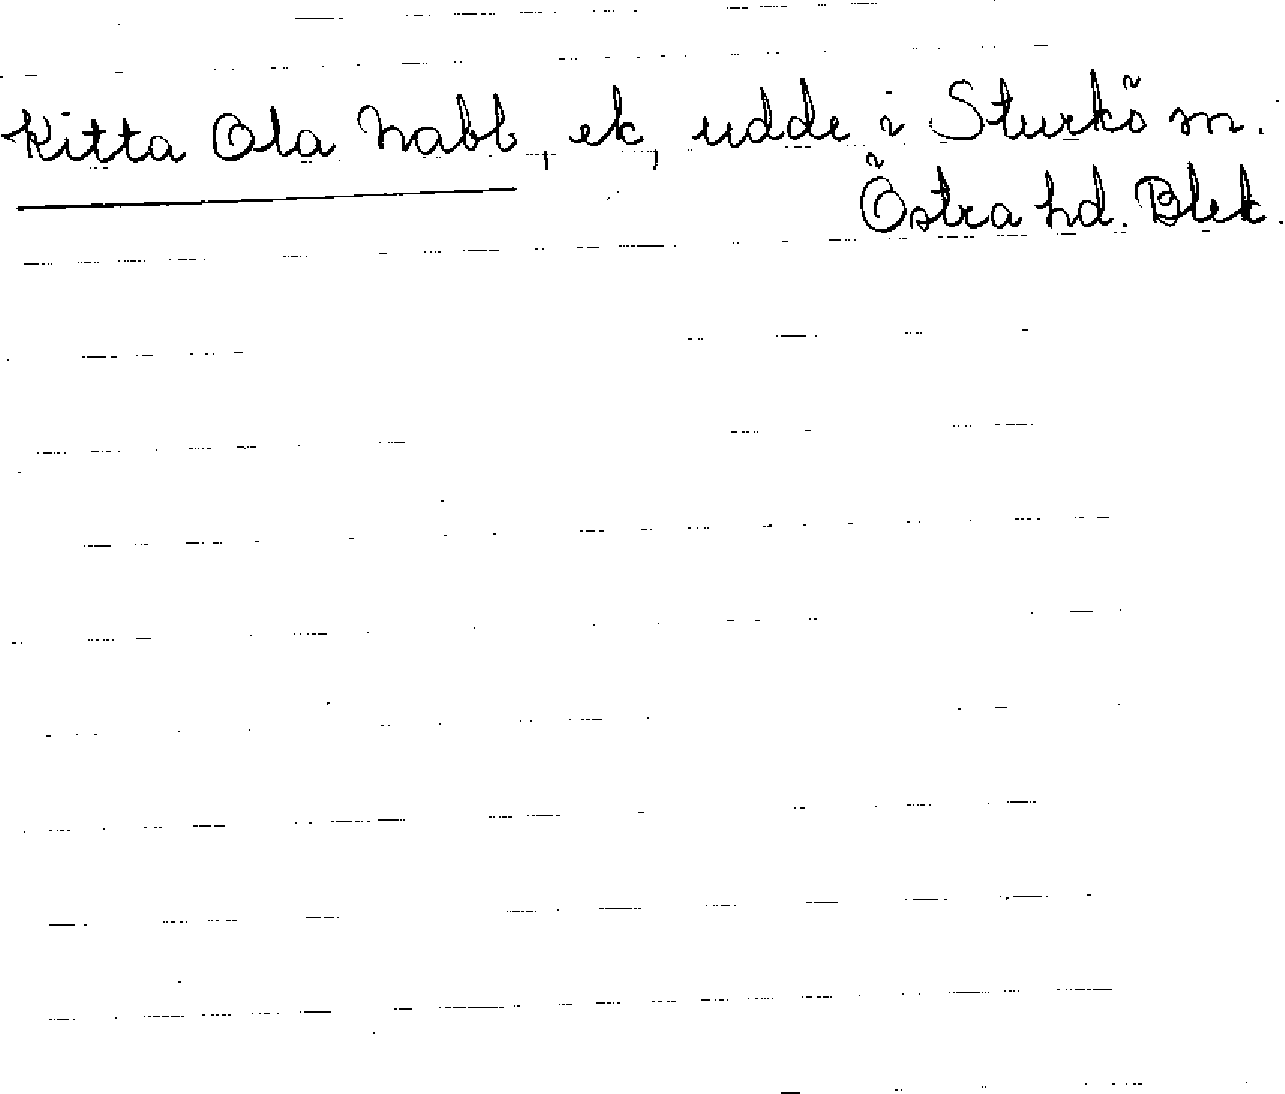 Kitta Ola nabb, ek, udde i Sturkö sn.
Östra hd. Blek.